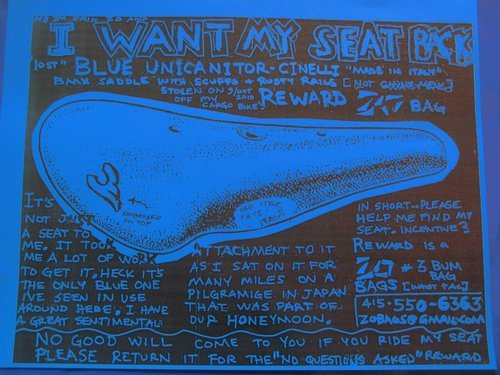 I WANT MY SEAT BACK
lost" BLUE UNICANITOR-CINELLI "MADE IN ITALY".
BMX SADDLE WITH SCUFFS & RUSTY RAILS
STOLEN ON 9/OUT 2010
OFF MY CARGO BIKE!
REWARD ZO BAG
EMBOSSED
ON TOP
IT'S
NOT JUST
A SEAT TO
ME. IT TOOK
ME A LOT OF WORK
TO GET IT. HECK IT'S
THE ONLY BLUE ONE
I'VE SEEN IN USE
AROUND HERE. I HAVE
A GREAT SENTIMENTAL
ATTACHMENT TO IT
AS I SAT ON IT FOR
MANY MILES ON A
PILGRAMIGE IN JAPAN
THAT WAS PART OF
OUR HONEYMOON.
IN SHORT-PLEASE
HELP ME FIND MY
SEAT. INCENTIVE?
REWARD IS A
ZO #3 BUM
BAG
BAGS
415-550-6363
ZOBAGS@GMAIL.COM
NO GOOD WILL COME TO YOU IF YOU RIDE MY SEAT
PLEASE RETURN IT FOR THE "NO QUESTIONS ASKED" REWARD.